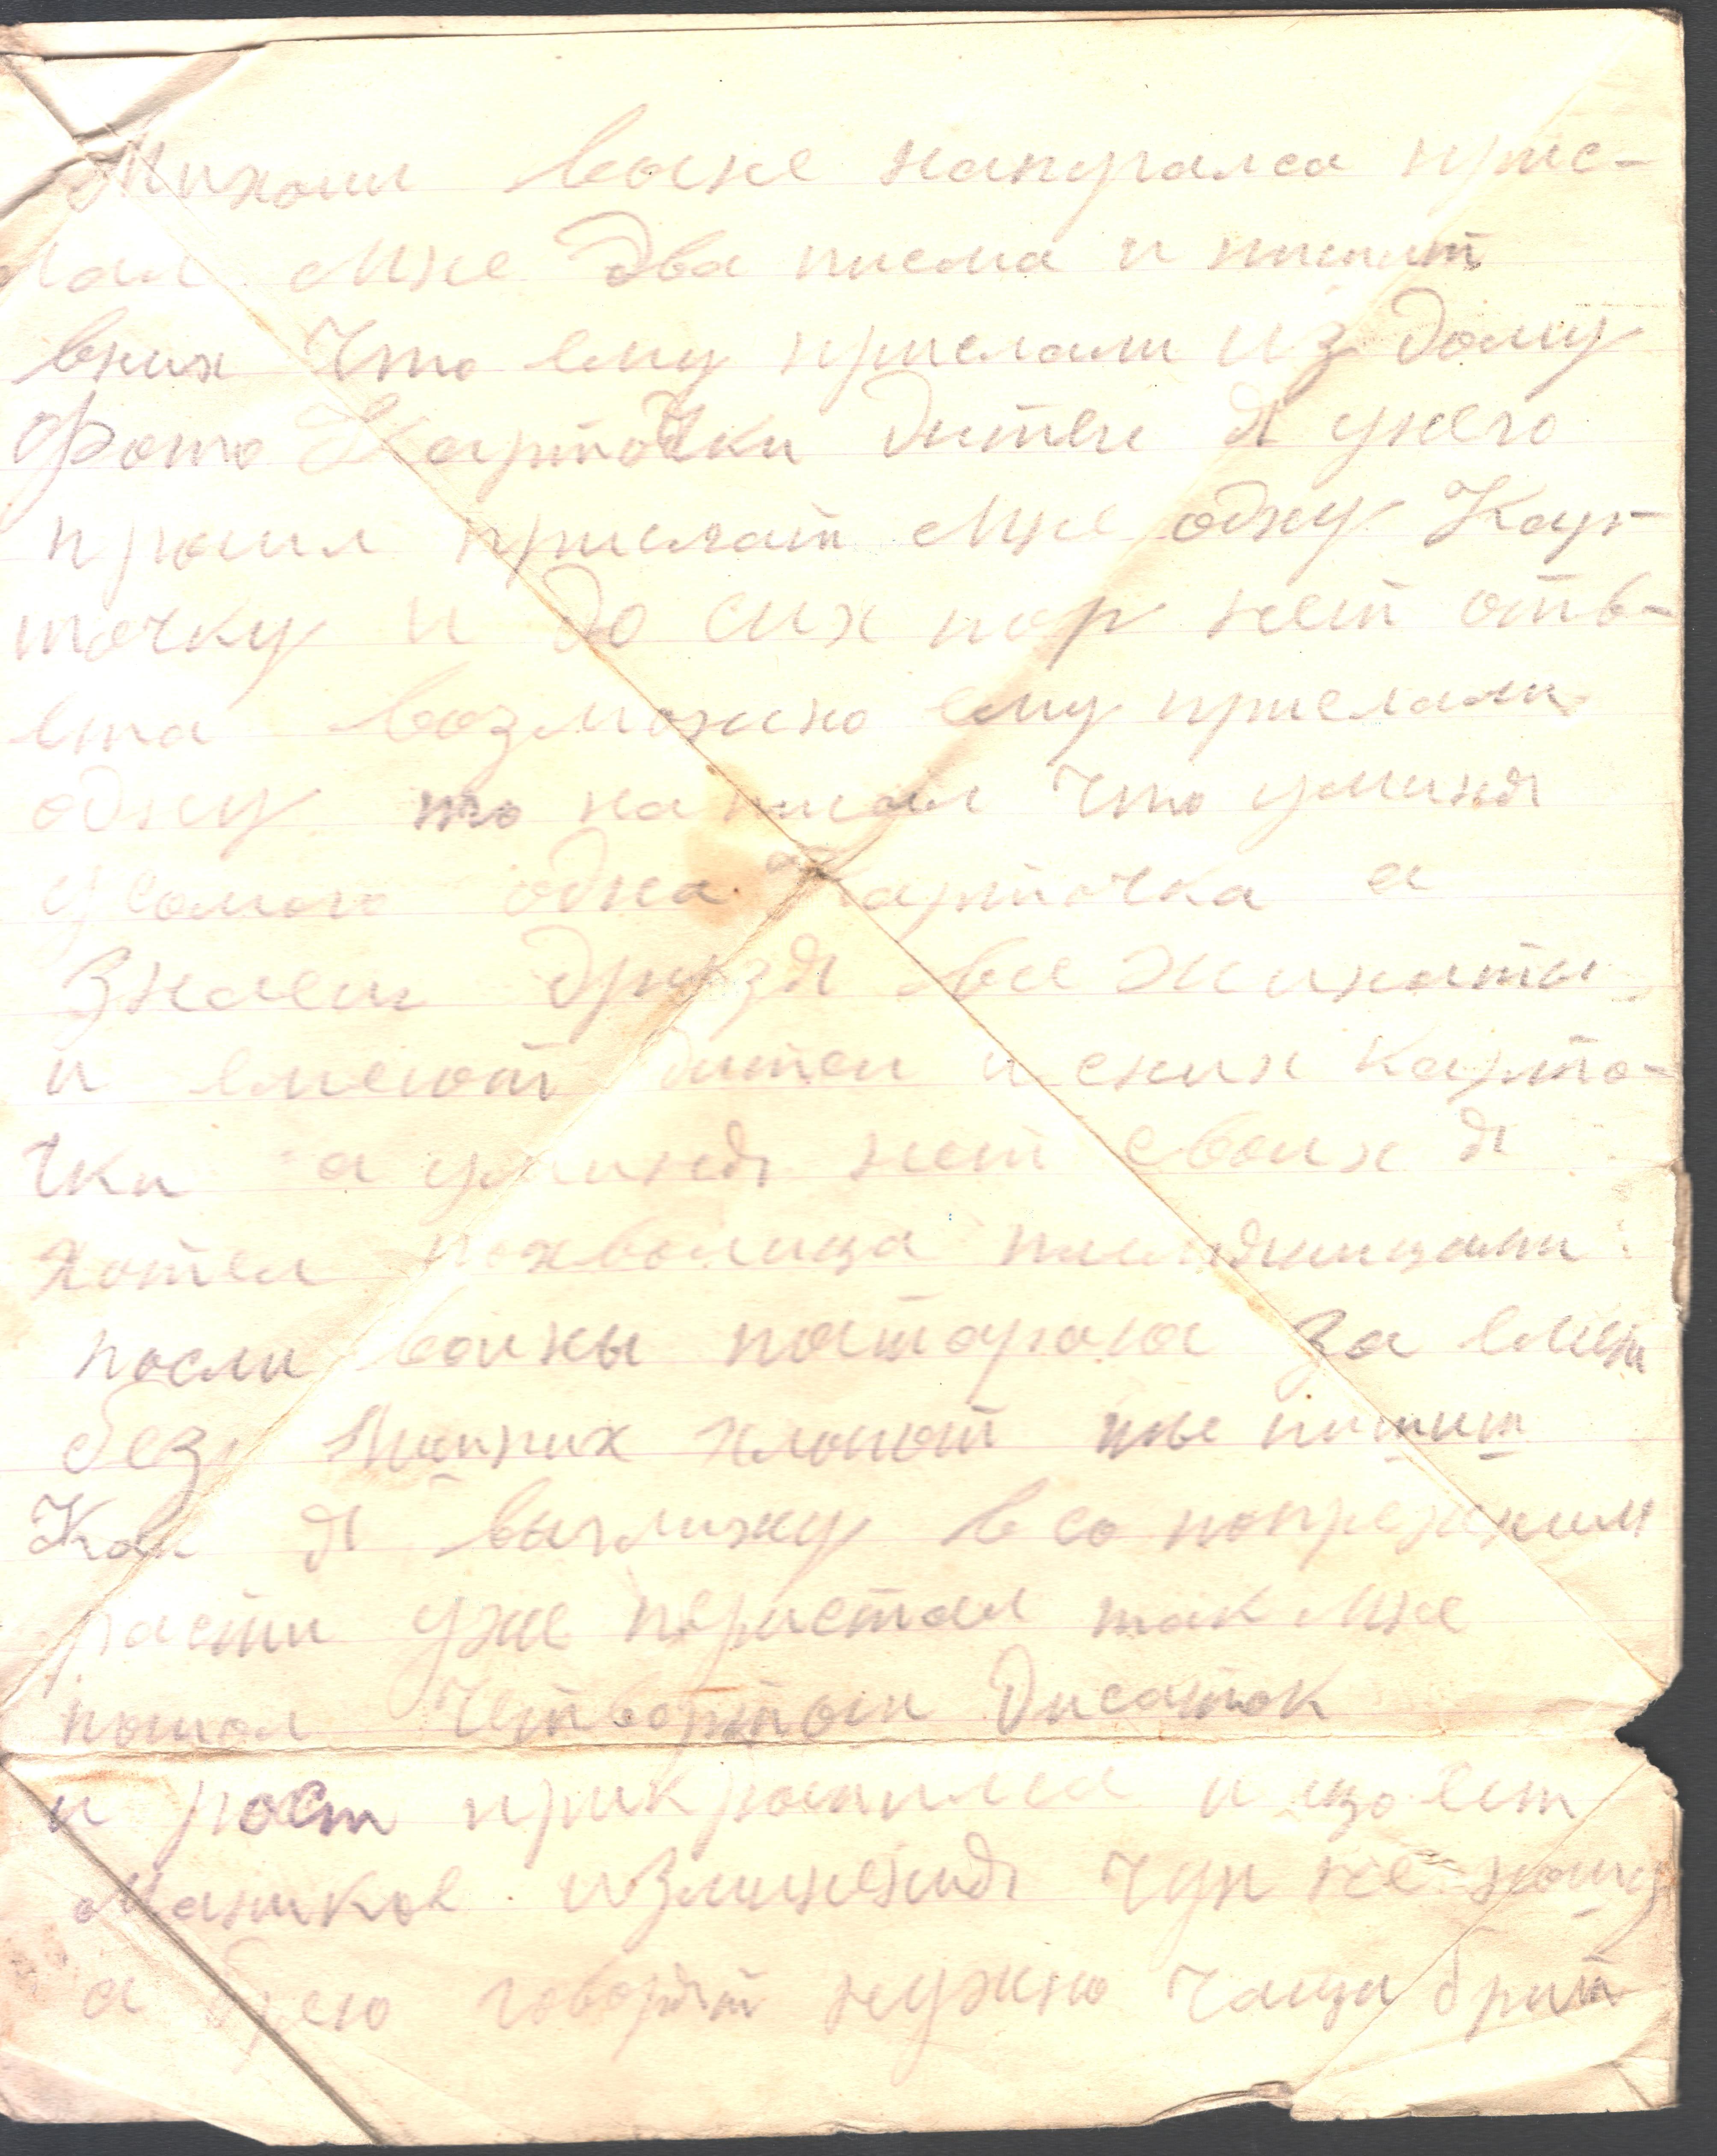 Михаил васке напугался прис-
лал мне два писма и пишит
вних Что ему прислали из дому
Фото Карточки дитей я унего
просил прислат мне одну Кар-
точку и до сих пор нет отв-
ета возможно ему прислали
одну то написал Что уминя
усамого одна Карточка а
Знаеш друзя все жинаты
и емеют дитеи и сних карто-
чки а уминя нет своих я
хотел похволица племяницами
посли воины постораюс за емет
без Многих хлопот ты пишиш
Как я выгляжу всо попрежним
расти уже перистал так мне
пошол Четвортыи дисаток
и рост прикротился и цвет
Манткое изминения чуп не ношу
а брею говорят нужно чащи брит